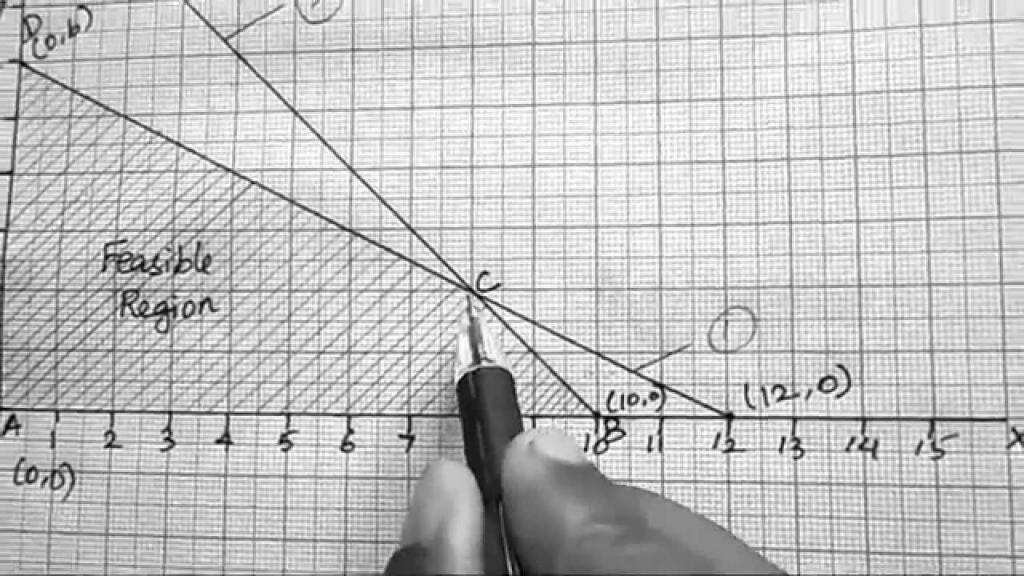 D(0,6)
Feasible
Region
C
1
(10,0)
(12,0)
A 1 2 3 4 5 6 7 10 B 11 12 13 14 15 X
(0,0)